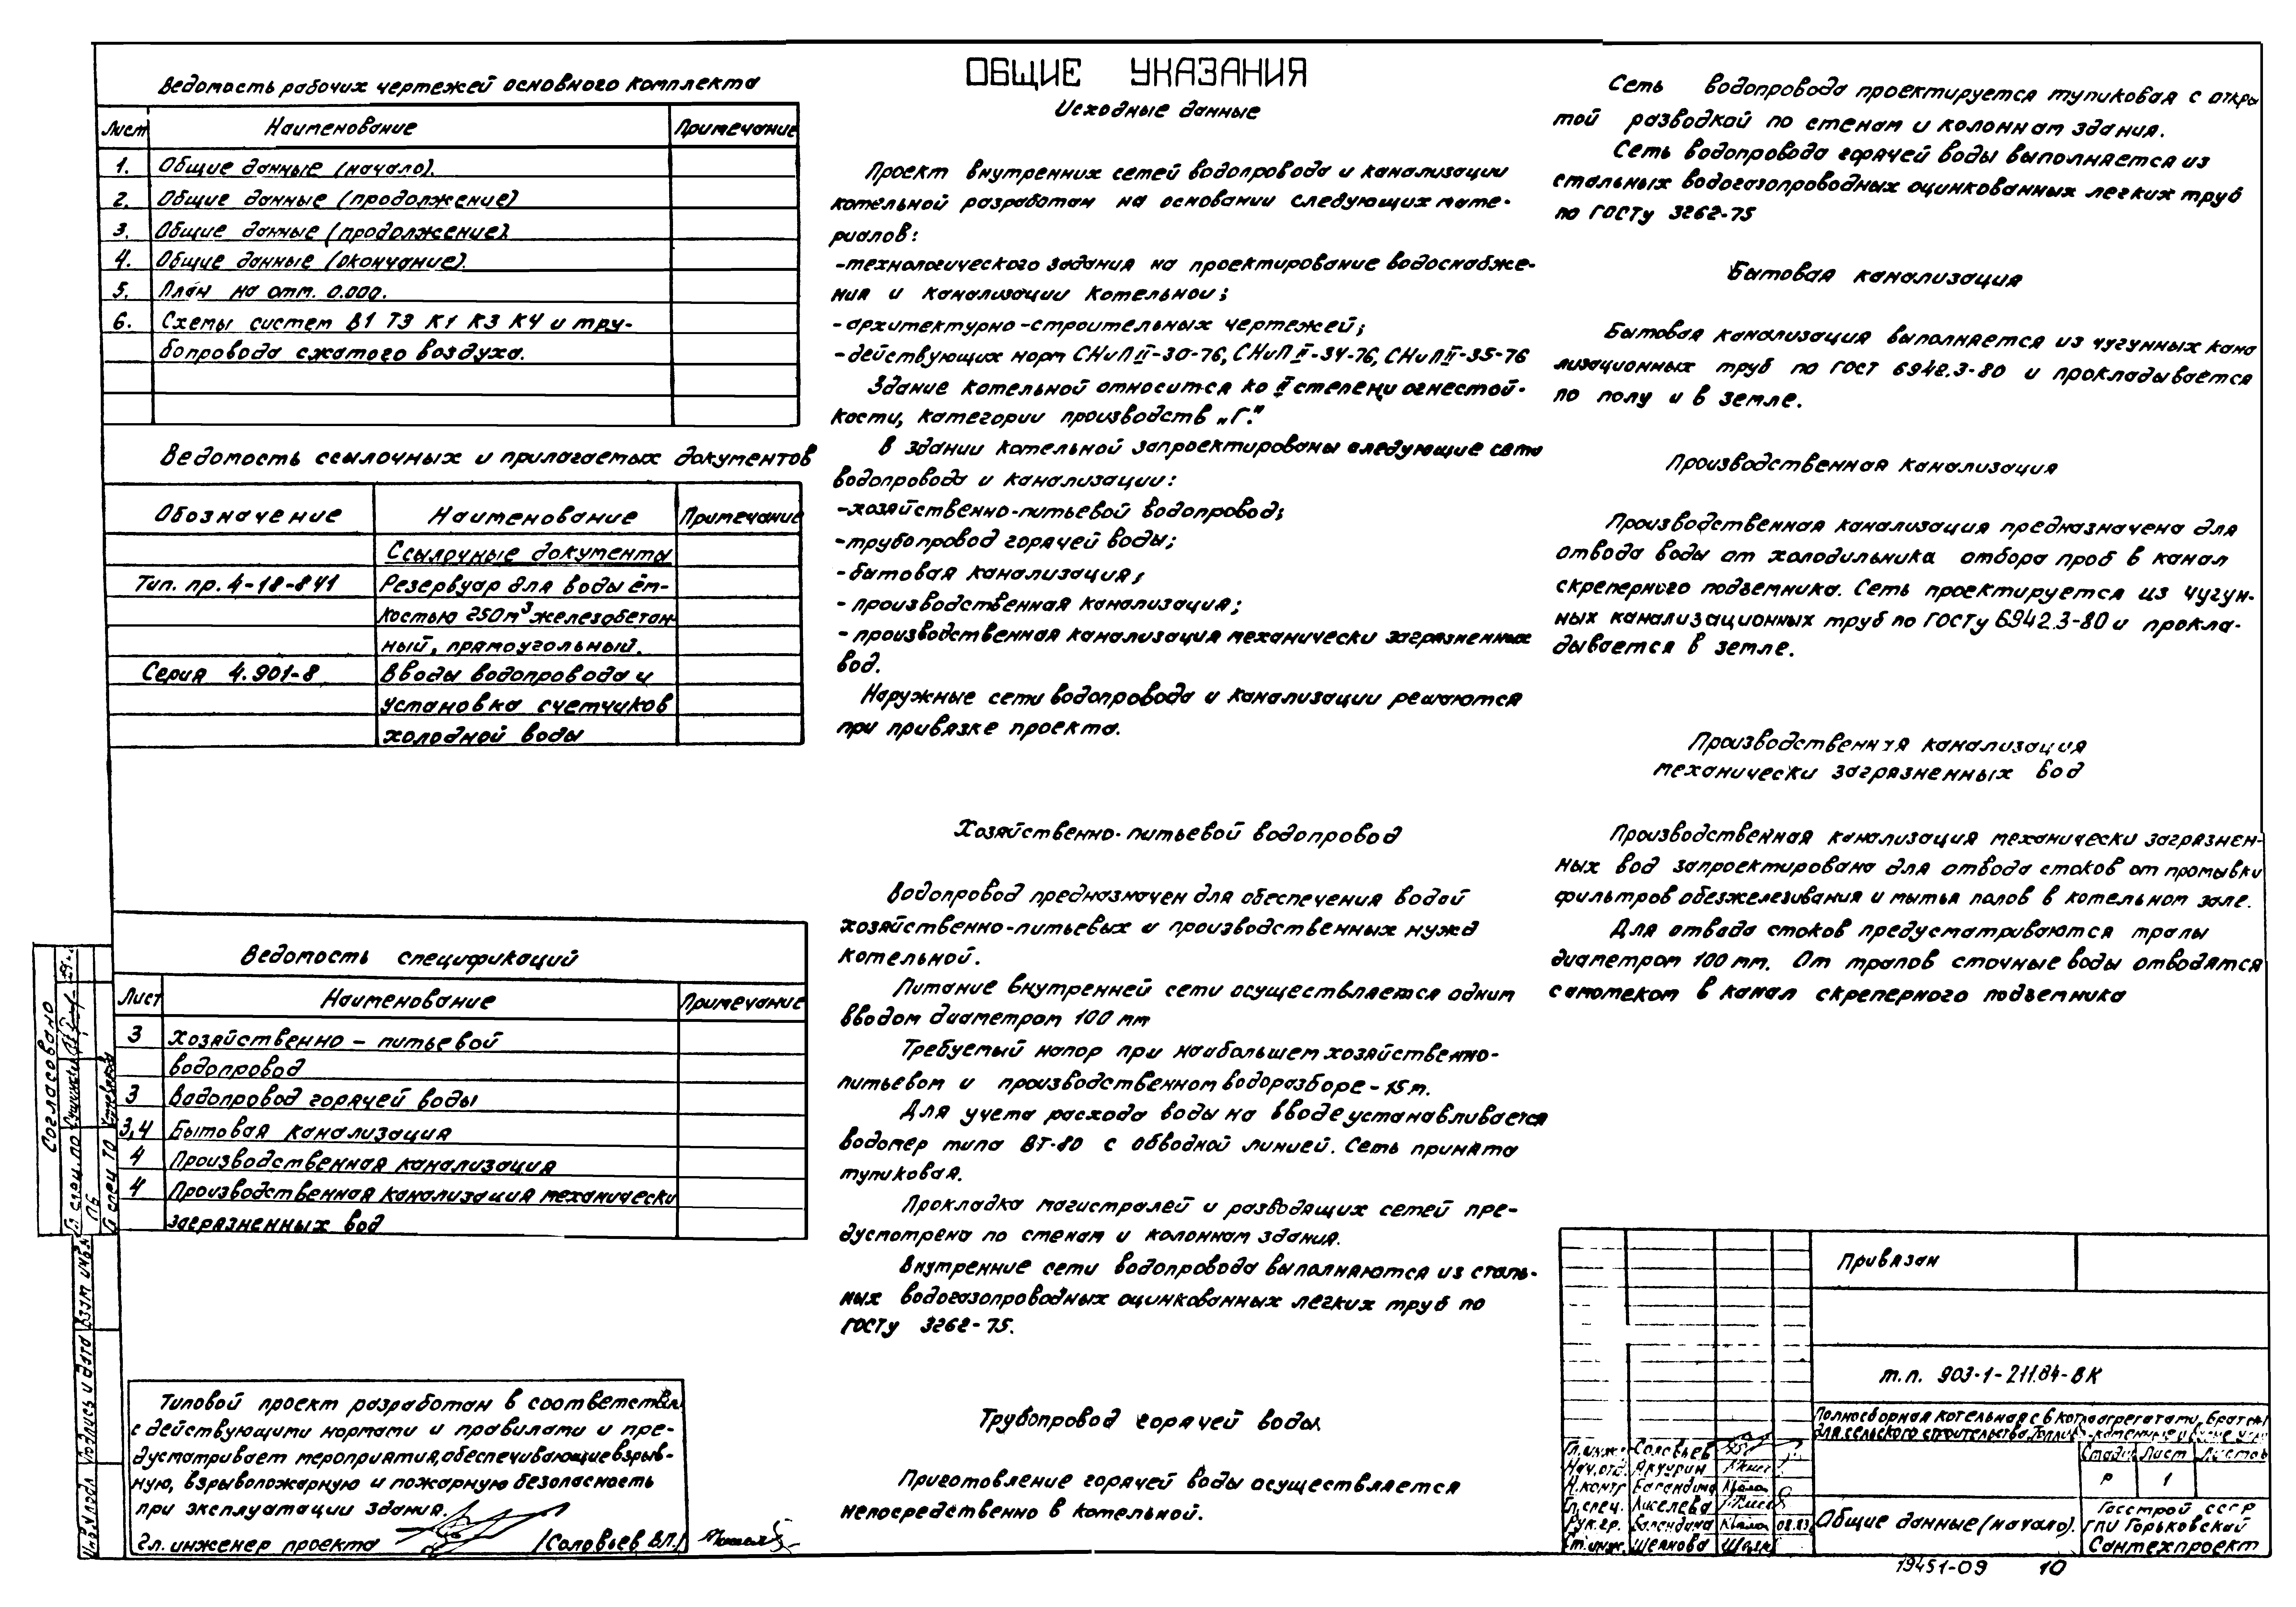 Ведомость рабочих чертежей основного комплекта
Лист Наименование Примечание
1. Общие данные (начало).
2. Общие данные (продолжение)
3. Общие данные (продолжение).
4. Общие данные (окончание).
5. План на отм. 0.000.
6. Схемы систем В1 Т3 К1 К3 К4 и тру-
бопровода сжатого воздуха.
Ведомость ссылочных и прилагаемых документов
Обозначение Наименование Примечание
Ссылочные документы
Тип. пр. 4-18-841 Резервуар для воды ём-
костью 250м³ железобетон-
ный, прямоугольный.
Серия 4.901-8 Вводы водопровода и
установка счетчиков
холодной воды
Ведомость спецификаций
Лист Наименование Примечание
3 Хозяйственно – питьевой
водопровод
3 Водопровод горячей воды
3,4 Бытовая канализация
4 Производственная канализация
4 Производственная канализация механически
загрязненных вод
Типовой проект разработан в соответствии
с действующими нормами и правилами и пре-
дусматривает мероприятия, обеспечивающие взрыв-
ную, взрывопожарную и пожарную безопасность
при эксплуатации здания.
Гл. инженер проекта /Соловьев В.П./
ОБЩИЕ УКАЗАНИЯ
Исходные данные
Проект внутренних сетей водопровода и канализации
котельной разработан на основании следующих мате-
риалов:
-технологического задания на проектирование водоснабже-
ния и канализации котельной;
-архитектурно-строительных чертежей;
-действующих норм СНиП II-30-76, СНиП II-34-76, СНиП II-35-76
Здание котельной относится ко II степени огнестой-
кости, категории производств „Г."
В здании котельной запроектированы следующие сети
водопровода и канализации:
-хозяйственно-питьевой водопровод;
-трубопровод горячей воды;
-бытовая канализация;
-производственная канализация;
-производственная канализация механически загрязненных
вод.
Наружные сети водопровода и канализации решаются
при привязке проекта.
Хозяйственно-питьевой водопровод
Водопровод предназначен для обеспечения водой
хозяйственно-питьевых и производственных нужд
котельной.
Питание внутренней сети осуществляется одним
вводом диаметром 100 мм
Требуемый напор при наибольшем хозяйственно-
питьевом и производственном водоразборе - 15м.
Для учета расхода воды на вводе устанавливается
водомер типа ВТ-80 с обводной линией. Сеть принята
тупиковая.
Прокладка магистралей и разводящих сетей пре-
дусмотрена по стенам и колоннам здания.
Внутренние сети водопровода выполняются из сталь-
ных водогазопроводных оцинкованных легких труб по
ГОСТу 3262-75.
Трубопровод горячей воды.
Приготовление горячей воды осуществляется
непосредственно в котельной.
Сеть водопровода проектируется тупиковая с откры
той разводкой по стенам и колоннам здания.
Сеть водопровода горячей воды выполняется из
стальных водогазопроводных оцинкованных легких труб
по ГОСТу 3262-75
Бытовая канализация
Бытовая канализация выполняется из чугунных кана
лизационных труб по ГОСТ 6942.3-80 и прокладывается
по полу и в земле.
Производственная канализация
Производственная канализация предназначена для
отвода воды от холодильника отбора проб в канал
скреперного подъемника. Сеть проектируется из чугун-
ных канализационных труб по ГОСТу 6942.3-80 и прокла-
дывается в земле.
Производственная канализация
механически загрязненных вод
Производственная канализация механически загрязнен-
ных вод запроектирована для отвода стоков от промывки
фильтров обезжелезивания и мытья полов в котельном зале.
Для отвода стоков предусматриваются трапы
диаметром 100 мм. От трапов сточные воды отводятся
самотеком в канал скреперного подъемника
Привязан
т.п. 903-1-211.84-ВК
Полносборная котельная с 6 котлоагрегатами „Братск-1
для сельского строительства. Топливо-каменные и бурые угли
Стадия Лист Листов
Р 1
Общие данные (начало).
Госстрой СССР
ГПИ Горьковский
Сантехпроект
Гл.инж. Соловьев
Нач.отд. Якурин
Н.контр Балендина
Гл.спец. Киселева
Рук.гр. Балендина 08.83
Ст.инж. Щеянова
Согласовано
Гл спец. ПО
Гл спец ТО
Инв.N подл Подпись и дата Взам инв.N
19451-09 10